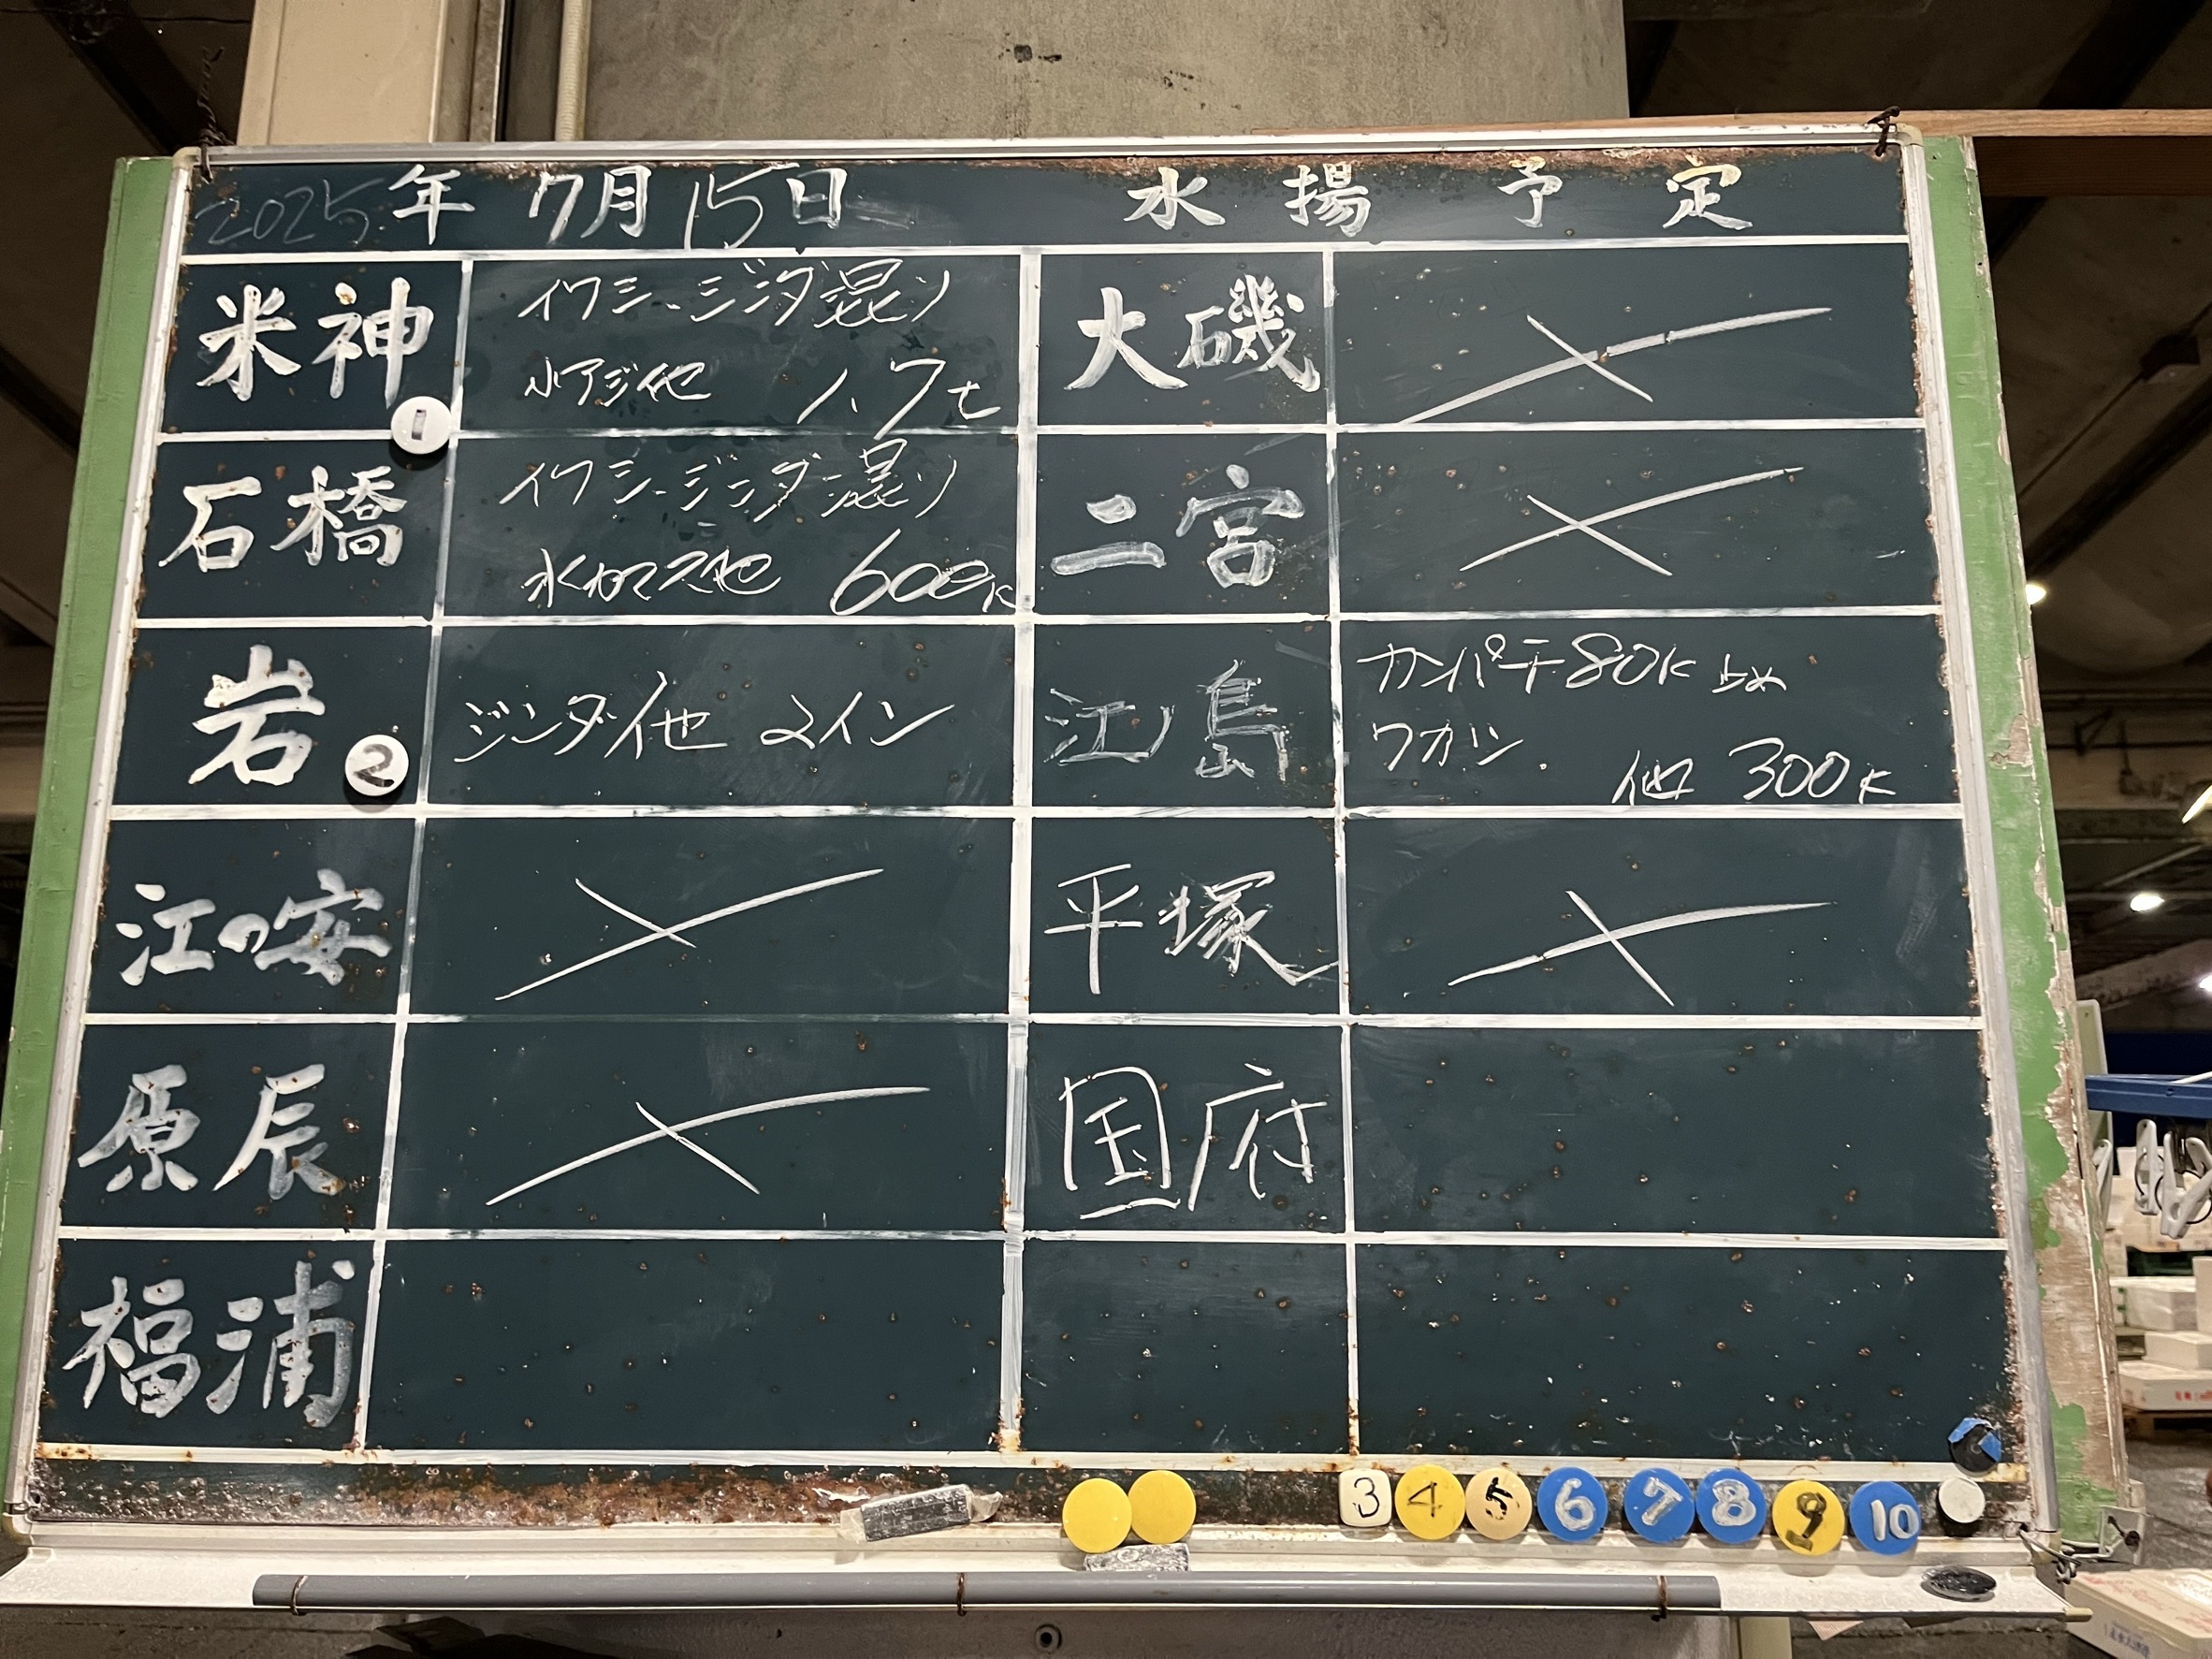 2025年 7月15日 水揚予定
米神
イワシ・ジンダ混り
小アジ他 1.7t
1
石橋
イワシ・ジンダ混り
水カマス他 600K
岩
ジンダ他 メイン
2
江の安
×
原辰
×
福浦
大磯
×
二宮
×
江ノ島
カンパチ80K 占め
ワカシ 他 300K
平塚
×
国府
3 4 5 6 7 8 9 10